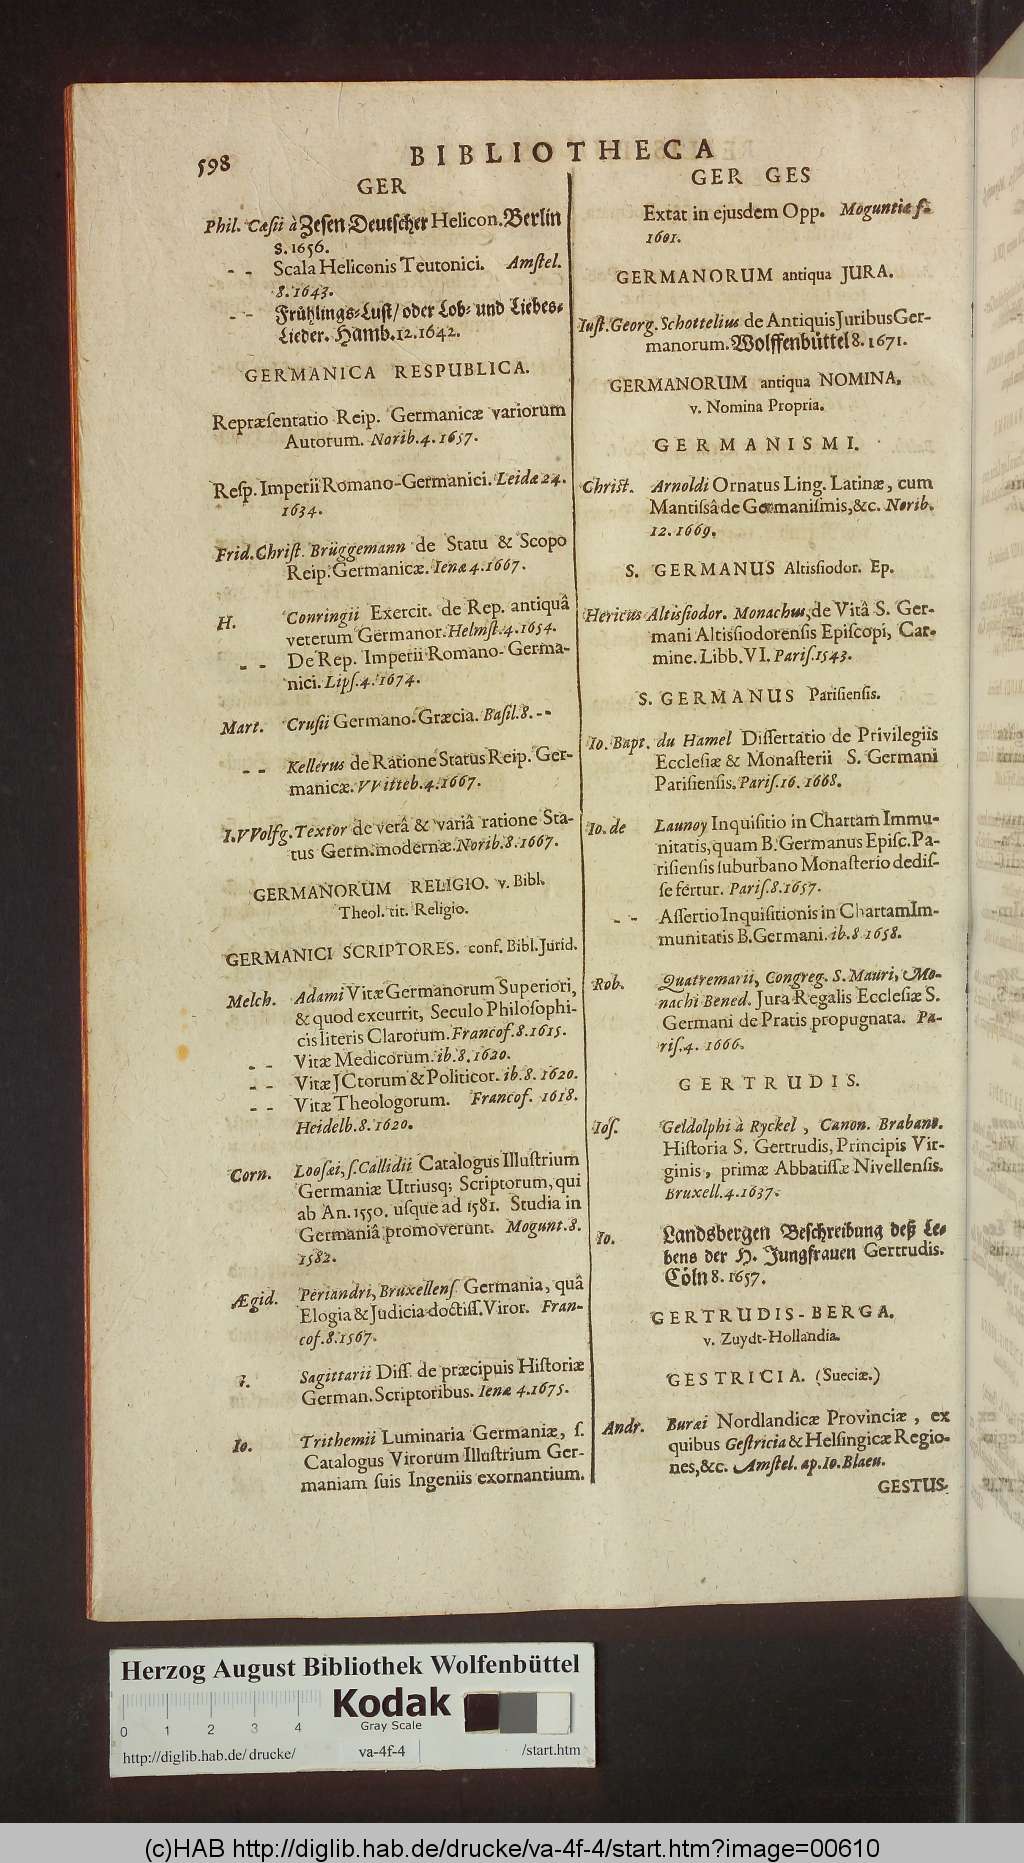 598
BIBLIOTHECA
GER
Phil. Cæsii à Zesen Deutscher Helicon. Berlin
8. 1656.
- - Scala Heliconis Teutonici. Amstel.
8. 1643.
- - Frühlings-Lust/ oder Lob- und Liebes-
Lieder. Hamb. 12. 1642.
GERMANICA RESPUBLICA.
Repræsentatio Reip. Germanicæ variorum
Autorum. Norib. 4. 1657.
Resp. Imperii Romano-Germanici. Leidæ 24.
1634.
Frid. Christ. Brüggemann de Statu & Scopo
Reip. Germanicæ. Ienæ 4. 1667.
H. Conringii Exercit. de Rep. antiquâ
veterum Germanor. Helmst. 4. 1654.
- - De Rep. Imperii Romano-Germa-
nici. Lips. 4. 1674.
Mart. Crusii Germano-Græcia. Basil. 8. - -
- - Kellerus de Ratione Status Reip. Ger-
manicæ. VVitteb. 4. 1667.
I. VVolfg. Textor de verâ & variâ ratione Sta-
tus Germ. modernæ. Norib. 8. 1667.
GERMANORUM RELIGIO. v. Bibl.
Theol. tit. Religio.
GERMANICI SCRIPTORES. conf. Bibl. Jurid.
Melch. Adami Vitæ Germanorum Superiori,
& quod excurrit, Seculo Philosophi-
cis literis Clarorum. Francof. 8. 1615.
- - Vitæ Medicorum. ib. 8. 1620.
- - Vitæ JCtorum & Politicor. ib. 8. 1620.
- - Vitæ Theologorum. Francof. 1618.
Heidelb. 8. 1620.
Corn. Loosæi, s. Callidii Catalogus Illustrium
Germaniæ Utriusq; Scriptorum, qui
ab An. 1550. usque ad 1581. Studia in
Germaniâ promoverunt. Mogunt. 8.
1582.
Ægid. Periandri, Bruxellens. Germania, quâ
Elogia & Judicia doctiss. Viror. Fran-
cof. 8. 1567.
Sagittarii Diss. de præcipuis Historiæ
German. Scriptoribus. Ienæ 4. 1675.
Io. Trithemii Luminaria Germaniæ, s.
Catalogus Virorum Illustrium Ger-
maniam suis Ingeniis exornantium.
GER GES
Extat in ejusdem Opp. Moguntiæ f.
1601.
GERMANORUM antiqua JURA.
Iust. Georg. Schottelius de Antiquis Juribus Ger-
manorum. Wolffenbüttel 8. 1671.
GERMANORUM antiqua NOMINA,
v. Nomina Propria.
GERMANISMI.
Christ. Arnoldi Ornatus Ling. Latinæ, cum
Mantissâ de Germanismis, &c. Norib.
12. 1669.
S. GERMANUS Altissiodor. Ep.
Hericus Altissiodor. Monachus, de Vitâ S. Ger-
mani Altissiodorensis Episcopi, Car-
mine. Libb. VI. Paris. 1543.
S. GERMANUS Parisiensis.
Io. Bapt. du Hamel Dissertatio de Privilegiis
Ecclesiæ & Monasterii S. Germani
Parisiensis. Paris. 16. 1668.
Io. de Launoy Inquisitio in Chartam Immu-
nitatis, quam B. Germanus Episc. Pa-
risiensis suburbano Monasterio dedis-
se fertur. Paris. 8. 1657.
- - Assertio Inquisitionis in Chartam Im-
munitatis B. Germani. ib. 8 1658.
Rob. Quatremarii, Congreg. S. Mauri, Mo-
nachi Bened. Jura Regalis Ecclesiæ S.
Germani de Pratis propugnata. Pa-
ris. 4. 1666.
GERTRUDIS.
Ios. Geldolphi à Ryckel, Canon. Brabant.
Historia S. Gertrudis, Principis Vir-
ginis, primæ Abbatissæ Nivellensis.
Bruxell. 4. 1637.
Io. Landsbergen Beschreibung deß Le-
bens der H. Jungfrauen Gertrudis.
Cöln 8. 1657.
GERTRUDIS-BERGA.
v. Zuydt-Hollandia.
GESTRICIA. (Sueciæ.)
Andr. Buræi Nordlandicæ Provinciæ, ex
quibus Gestricia & Helsingicæ Regio-
nes, &c. Amstel. ap. Io. Blaeu.
GESTUS.
Herzog August Bibliothek Wolfenbüttel
Kodak
Gray Scale
0 1 2 3 4
http://diglib.hab.de/drucke/ va-4f-4 /start.htm
(c)HAB http://diglib.hab.de/drucke/va-4f-4/start.htm?image=00610